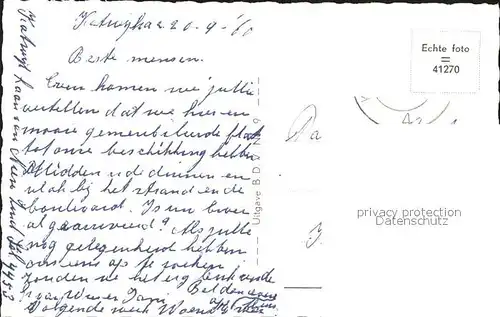 Katwijk a z 20-9-'60
Beste mensen.
Even komen we jullie
vertellen dat we hier een
mooie gemeubileerde flat
tot onze beschikking hebben
Midden in de duinen en
vlak bij het strand en de
boulevard. Is uw broer
al gearriveerd? Als jullie
nog gelegenheid hebben
ons eens op te zoeken
zouden we het erg leuk vinden
Bel dan even
volgende week Woensd
Katwijk Laan van Nieuw Zuid
Uitgave B D A N° 9
Echte foto
=
41270
privacy protection
Datenschutz